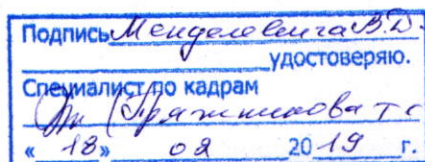 Подпись Менделевича В.Д.
удостоверяю.
Специалист по кадрам
(Пряжникова Т.С
« 18» 02 2019 г.